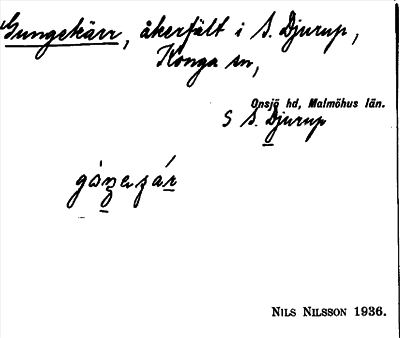 Gungekärr, åkerfält i S. Djurup,
Konga sn,
Onsjö hd, Malmöhus län.
S S. Djurup
NILS NILSSON 1936.